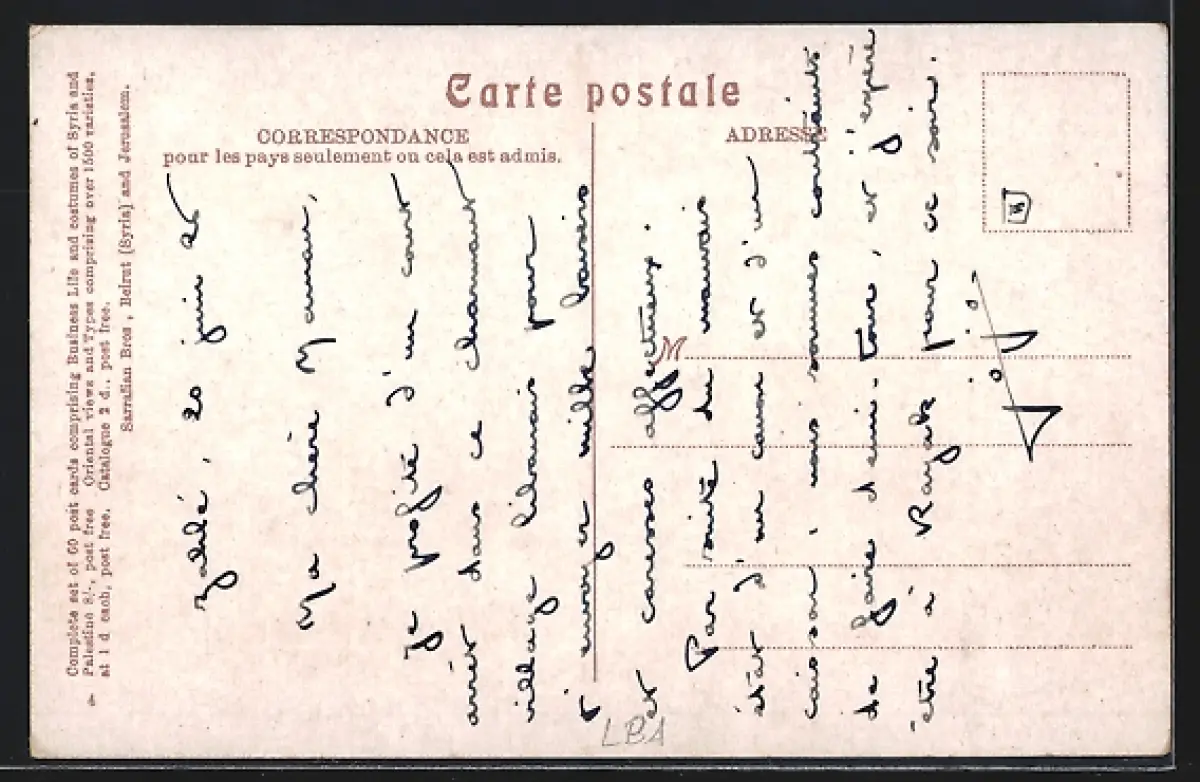 Carte postale
CORRESPONDANCE
pour les pays seulement ou cela est admis.
ADRESSE
Complete set of 60 post cards comprising Business Life and costumes of Syria and
Palestine 8/-, post free Oriental views and Types comprising over 1500 varieties,
at 1 d each, post free. Catalogue 2 d., post free.
Sarrafian Bros, Beirut (Syria) and Jerusalem.
Zahlé, 20 juin 26
Ma chère Maman,
Je profite d'un court
arrêt dans ce charmant
village libanais pour
t'envoyer mille baisers
et caresses affectueux.
Par suite du mauvais
état d'un canon et d'un
caisson, nous sommes contraints
de faire demi-tour, et j'espère
être à Rayak pour ce soir.
M
LBA